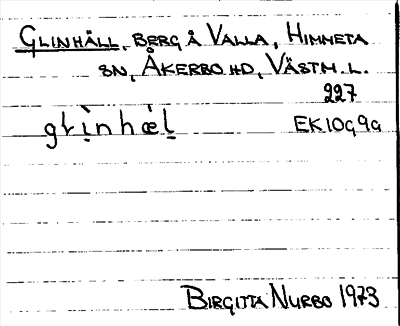 GLINHÄLL, BERG Å VALLA, HIMMETA
SN, ÅKERBO HD, VÄSTM. L.
227
grìnhæ̀l EK10G9G
BIRGITTA NURBO 1973